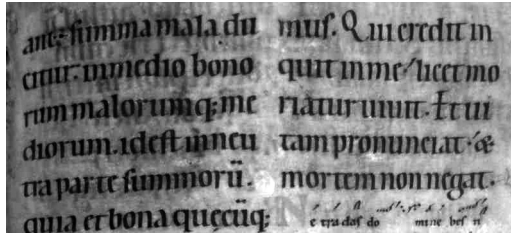 ane; summa mala du
citur. in medio bono
rum malorumq; me
diorum. id est in neu
tra parte summorū.
quia et bona quecūq;
mus. Qui credit in
quit in me / licet mo
riatur uiuit. Et ui
tam pronunciat / &
mortem non negat.
e tradas do mine bes